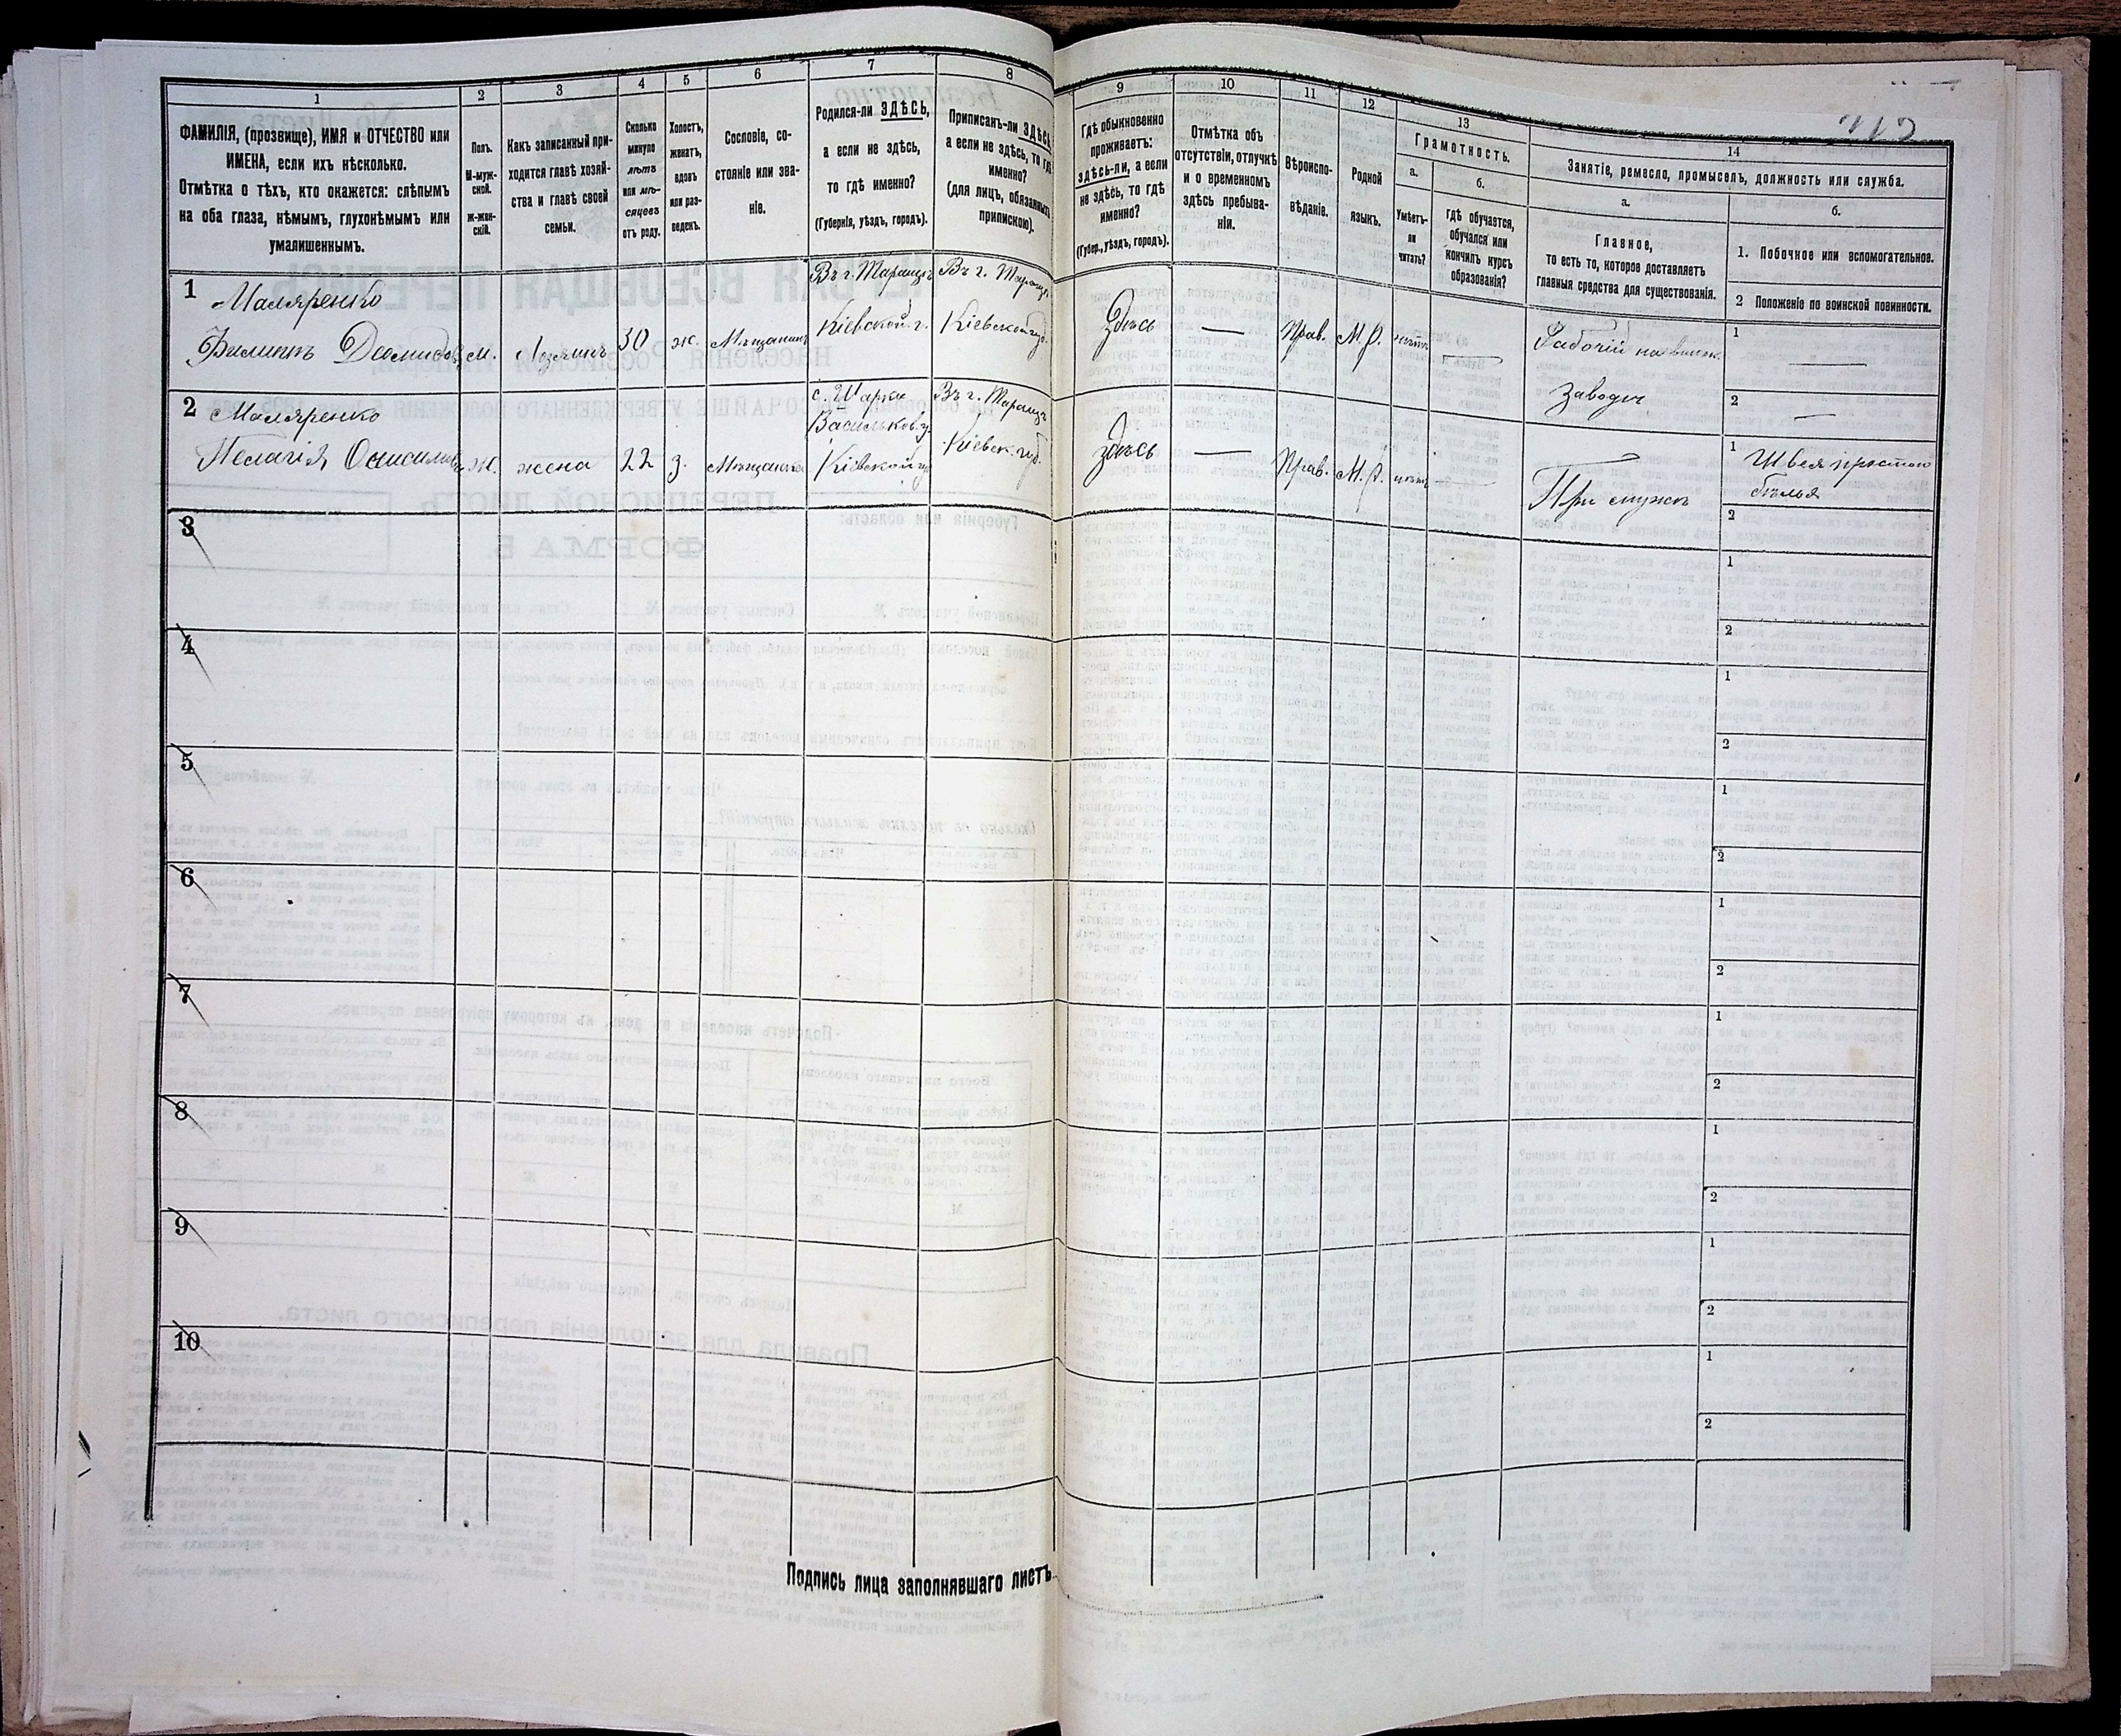 1
2
3
4
5
6
7
8
ФАМИЛІЯ, (прозвище), ИМЯ и ОТЧЕСТВО или
ИМЕНА, если ихъ нѣсколько.
Отмѣтка о тѣхъ, кто окажется: слѣпымъ
на оба глаза, нѣмымъ, глухонѣмымъ или
умалишеннымъ.
Полъ.
М-муж-
ской.
ж-жен-
скій.
Какъ записанный при-
ходится главѣ хозяй-
ства и главѣ своей
семьи.
Сколько
минуло
лѣтъ
или мѣ-
сяцевъ
отъ роду.
Холостъ,
женатъ,
вдовъ
или раз-
веденъ.
Сословіе, со-
стояніе или зва-
ніе.
Родился-ли ЗДѢСЬ,
а если не здѣсь,
то гдѣ именно?
(Губернія, уѣздъ, городъ).
Приписанъ-ли ЗДѢСЬ,
а если не здѣсь, то гдѣ
именно?
(для лицъ, обязанныхъ
припискою).
9
10
11
12
13
14
Гдѣ обыкновенно
проживаетъ:
здѣсь-ли, а если
не здѣсь, то гдѣ
именно?
(Губер., уѣздъ, городъ).
Отмѣтка объ
отсутствіи, отлучкѣ
и о временномъ
здѣсь пребыва-
ніи.
Вѣроиспо-
вѣданіе.
Родной
языкъ.
Грамотность.
а.
Умѣетъ-
ли
читать?
б.
гдѣ обучается,
обучался или
кончилъ курсъ
образованія?
Занятіе, ремесло, промыселъ, должность или служба.
а.
Главное,
то есть то, которое доставляетъ
главныя средства для существованія.
б.
1. Побочное или вспомогательное.
2 Положеніе по воинской повинности.
1
Маляренко
Филиппъ Діомидов
м.
хозяинъ
30
ж.
Мѣщанинъ
Въ г. Таращѣ
Кіевской г.
Въ г. Таращѣ
Кіевской губ.
Здѣсь
—
Прав.
М. р.
нѣтъ
—
Рабочій на
заводѣ
1
—
2
—
2
Маляренко
Пелагія
ж.
жена
22
з.
Мѣщанка
с. Шарки
Васильков. у.
Кіевской гу.
Въ г. Таращѣ
Кіевск. губ.
здѣсь
—
Прав.
М. р.
нѣтъ
—
При мужѣ
1
Швея простого
бѣлья
2
3
1
2
4
1
2
5
1
2
6
1
2
7
1
2
8
1
2
9
1
2
10
1
2
Подпись лица заполнявшаго листъ